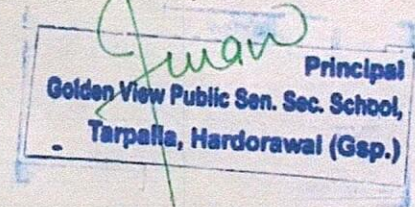 Principal
Golden View Public Sen. Sec. School,
Tarpalla, Hardorawal (Gsp.)